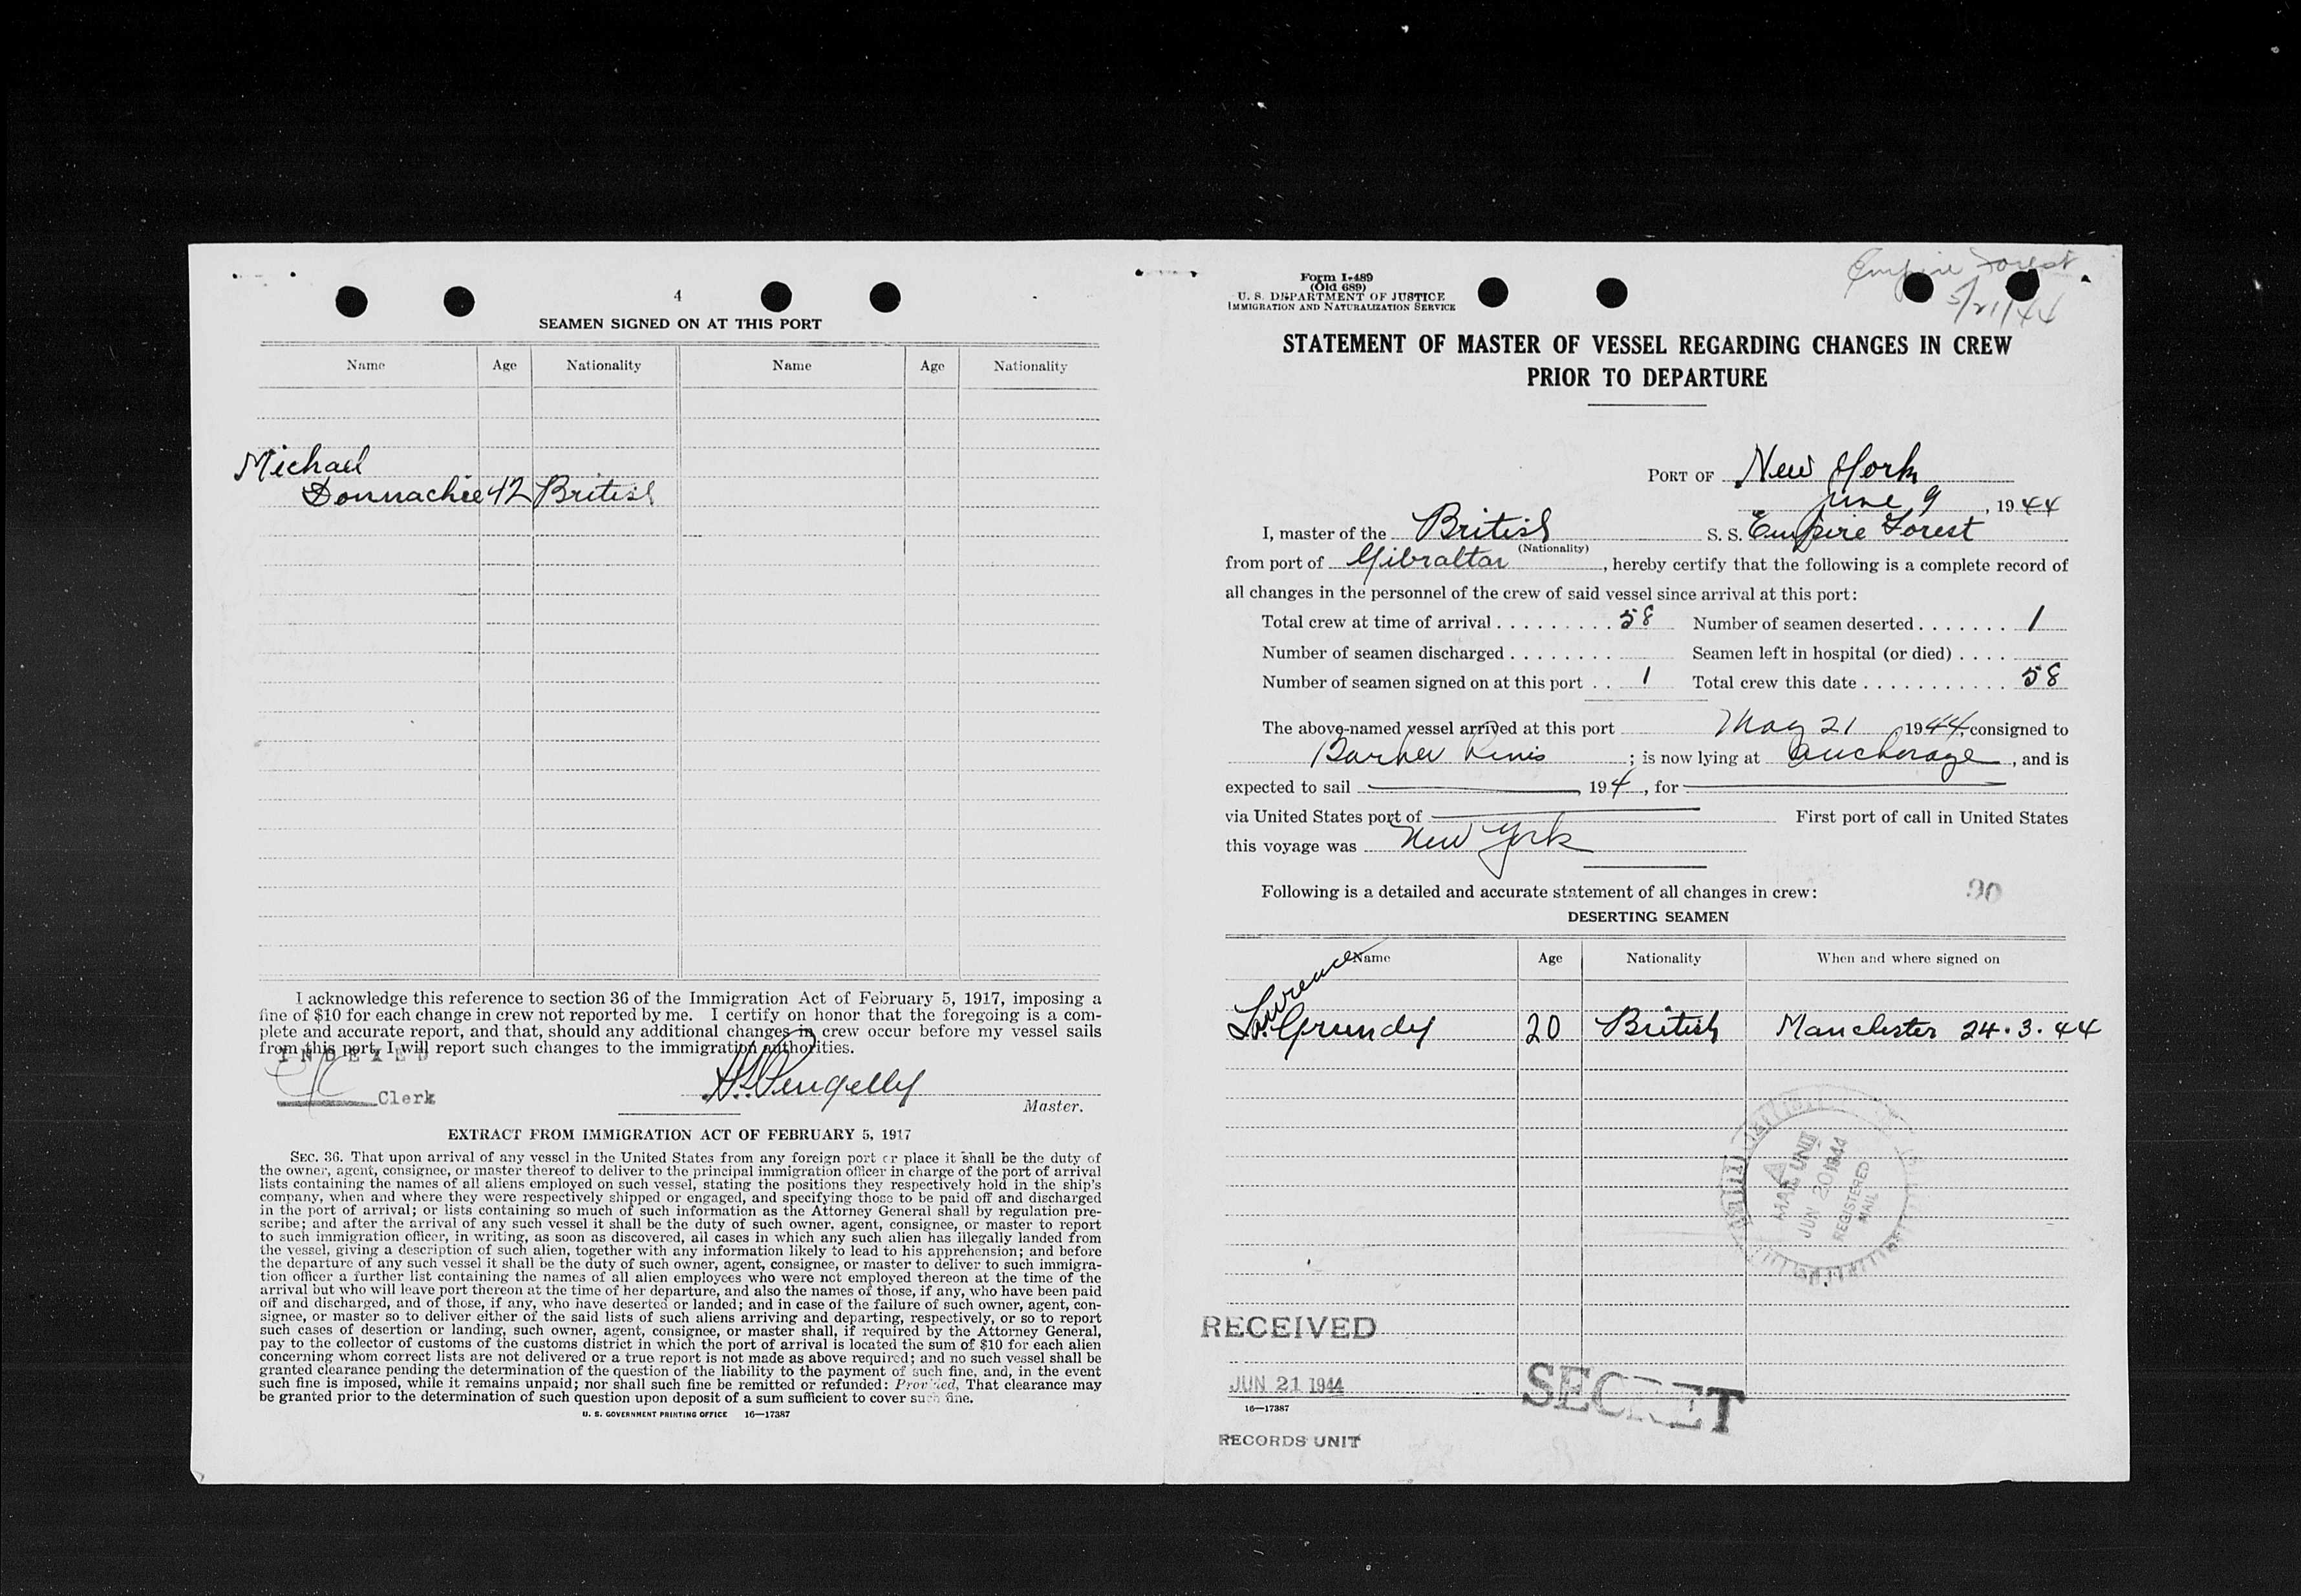 4
SEAMEN SIGNED ON AT THIS PORT
Name Age Nationality Name Age Nationality
Michael
Donnachie 42 British
I acknowledge this reference to section 36 of the Immigration Act of February 5, 1917, imposing a
fine of $10 for each change in crew not reported by me. I certify on honor that the foregoing is a com-
plete and accurate report, and that, should any additional changes in crew occur before my vessel sails
from this port, I will report such changes to the immigration authorities.
INDEXED
Clerk
H. Pengelly
Master.
EXTRACT FROM IMMIGRATION ACT OF FEBRUARY 5, 1917
SEC. 36. That upon arrival of any vessel in the United States from any foreign port or place it shall be the duty of
the owner, agent, consignee, or master thereof to deliver to the principal immigration officer in charge of the port of arrival
lists containing the names of all aliens employed on such vessel, stating the positions they respectively hold in the ship's
company, when and where they were respectively shipped or engaged, and specifying those to be paid off and discharged
in the port of arrival; or lists containing so much of such information as the Attorney General shall by regulation pre-
scribe; and after the arrival of any such vessel it shall be the duty of such owner, agent, consignee, or master to report
to such immigration officer, in writing, as soon as discovered, all cases in which any such alien has illegally landed from
the vessel, giving a description of such alien, together with any information likely to lead to his apprehension; and before
the departure of any such vessel it shall be the duty of such owner, agent, consignee, or master to deliver to such immigra-
tion officer a further list containing the names of all alien employees who were not employed thereon at the time of the
arrival but who will leave port thereon at the time of her departure, and also the names of those, if any, who have been paid
off and discharged, and of those, if any, who have deserted or landed; and in case of the failure of such owner, agent, con-
signee, or master so to deliver either of the said lists of such aliens arriving and departing, respectively, or so to report
such cases of desertion or landing, such owner, agent, consignee, or master shall, if required by the Attorney General,
pay to the collector of customs of the customs district in which the port of arrival is located the sum of $10 for each alien
concerning whom correct lists are not delivered or a true report is not made as above required; and no such vessel shall be
granted clearance pending the determination of the question of the liability to the payment of such fine, and, in the event
such fine is imposed, while it remains unpaid; nor shall such fine be remitted or refunded: Provided, That clearance may
be granted prior to the determination of such question upon deposit of a sum sufficient to cover such fine.
U. S. GOVERNMENT PRINTING OFFICE 16—17387
Form I-489
(Old 689)
U. S. DEPARTMENT OF JUSTICE
IMMIGRATION AND NATURALIZATION SERVICE
Empire Forest
5/21/44
STATEMENT OF MASTER OF VESSEL REGARDING CHANGES IN CREW
PRIOR TO DEPARTURE
PORT OF New York
June 9, 1944
I, master of the British S. S. Empire Forest
(Nationality)
from port of Gibraltar, hereby certify that the following is a complete record of
all changes in the personnel of the crew of said vessel since arrival at this port:
Total crew at time of arrival . . . . . . . . . 58 Number of seamen deserted . . . . . . . 1
Number of seamen discharged . . . . . . . . Seamen left in hospital (or died) . . . .
Number of seamen signed on at this port . . 1 Total crew this date . . . . . . . . . . . 58
The above-named vessel arrived at this port May 21 1944, consigned to
Barber ; is now lying at anchorage, and is
expected to sail , 194 , for
via United States port of First port of call in United States
this voyage was New York
Following is a detailed and accurate statement of all changes in crew:
DESERTING SEAMEN
Name Age Nationality When and where signed on
Lawrence
Grundy 20 British Manchester 24.3.44
MAIL UNIT
JUN 20 1944
REGISTERED
MAIL
RECEIVED
JUN 21 1944
SECRET
16—17387
RECORDS UNIT